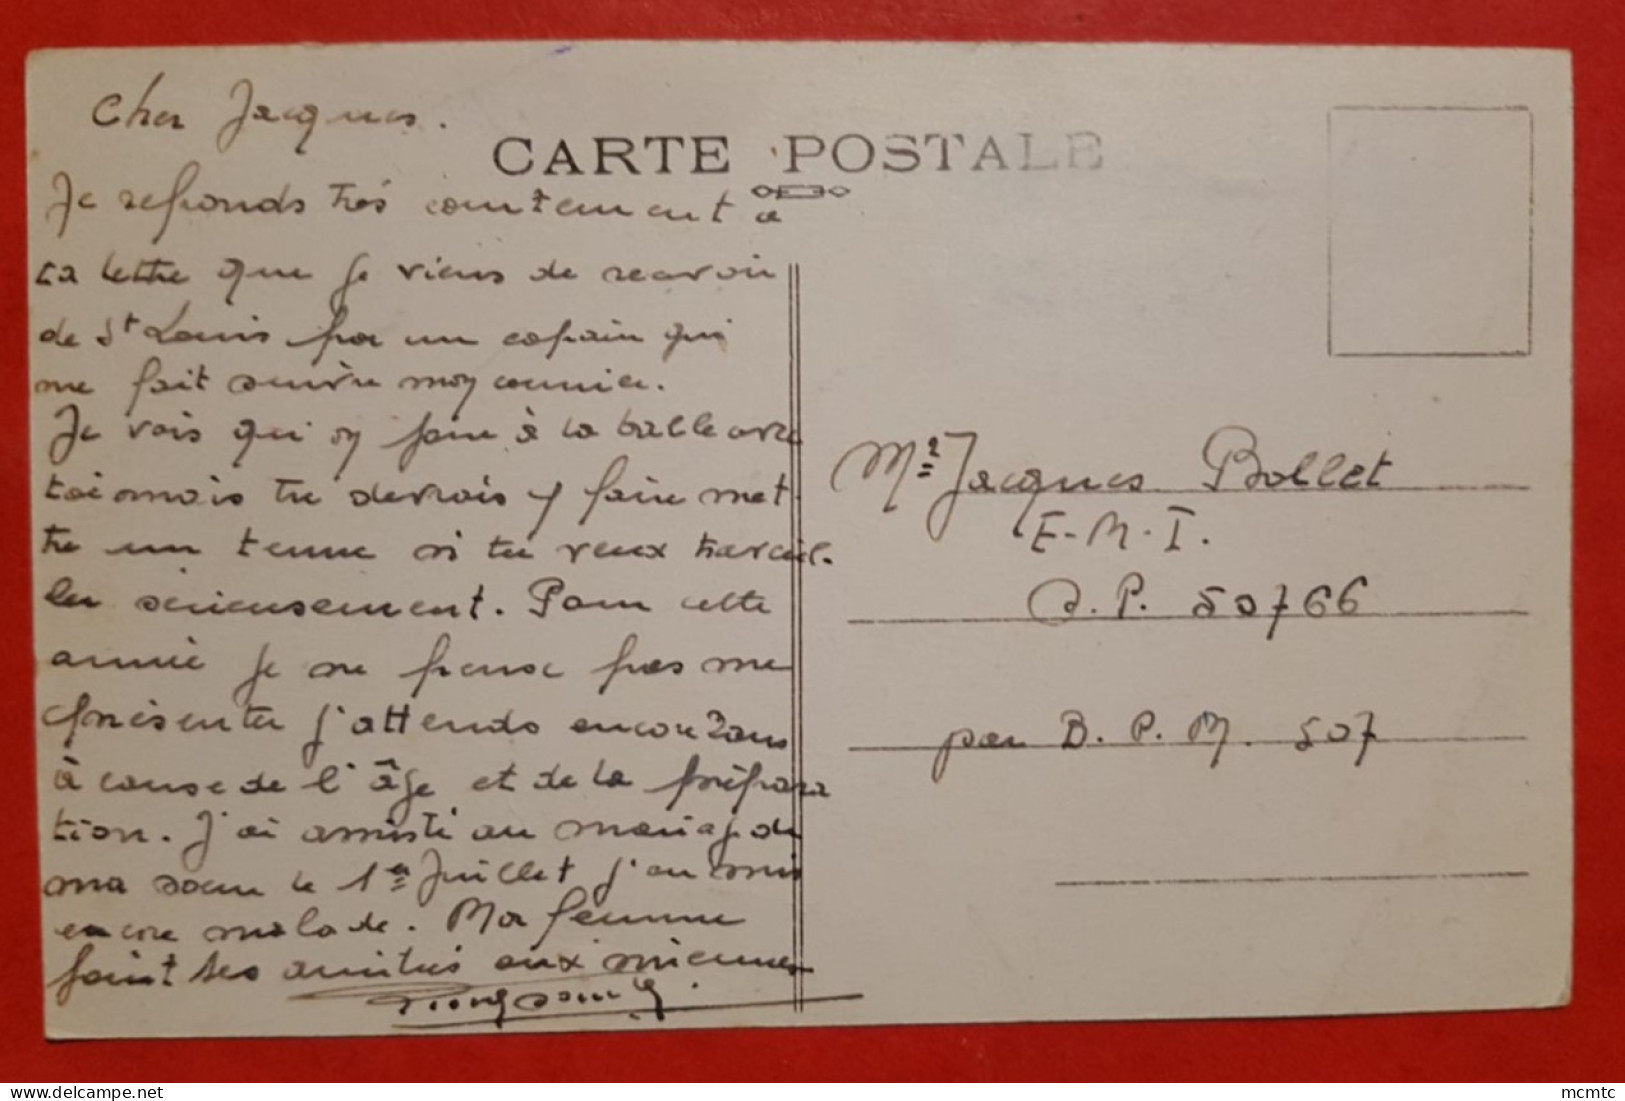 Cher Jacques.
CARTE POSTALE
Je reponds très contentement à
ta lettre que je viens de recevoir
de St Louis par un copain qui
me fait suivre moy courrier.
Je vois qui on faire à la balle avec
toi mais tu devrais y faire met-
tre un terme si tu veux travail-
ler sérieusement. Pour cette
année je ne pense pas me
présenter j'attends encore 2 ans
à cause de l'âge et de la prépara
tion. J'ai assisté au mariage de
ma soeur le 1er Juillet j'en suis
encore malade. Ma femme
joint ses amitiés aux miennes
Mr Jacques Bollet
E-M-I.
S.P. 50766
par B.P.M. 507
mcmtc